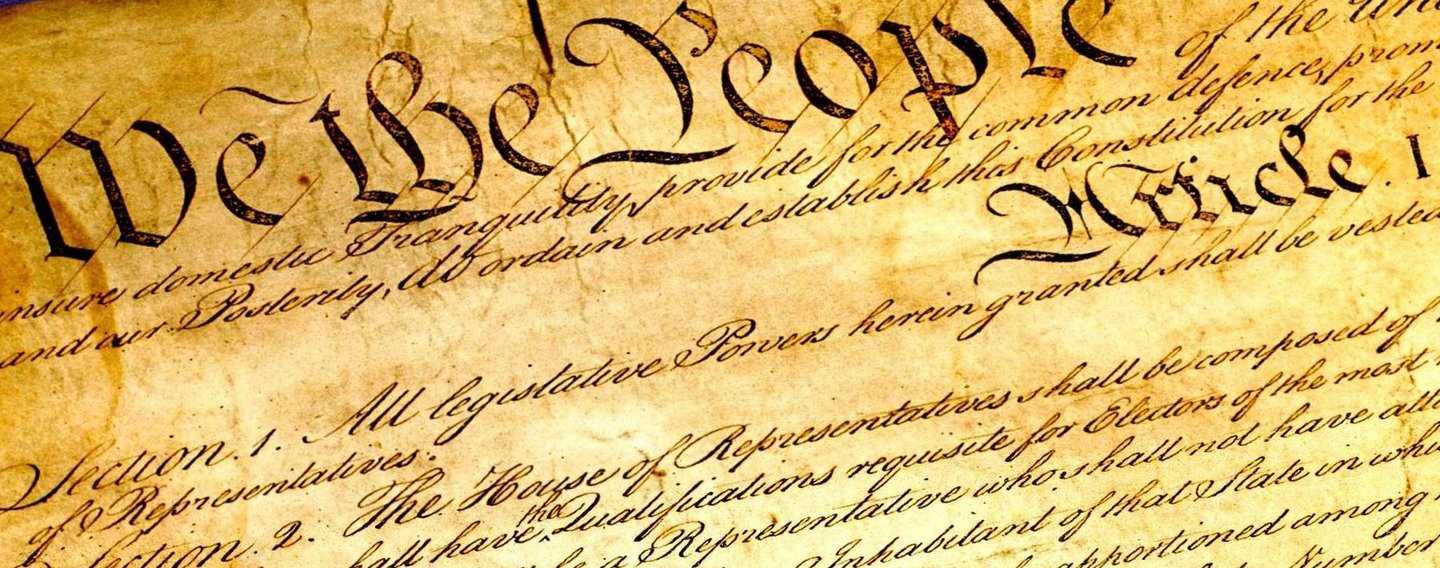 We the People of the
insure domestic Tranquility, provide for the common defence, prom
and our Posterity, do ordain and establish this Constitution for the
Article. I
Section. 1. All legislative Powers herein granted shall be vested
of Representatives.
Section. 2. The House of Representatives shall be composed of
shall have the Qualifications requisite for Electors of the most
be a Representative who shall not have atta
Inhabitant of that State in whi
apportioned among
Number